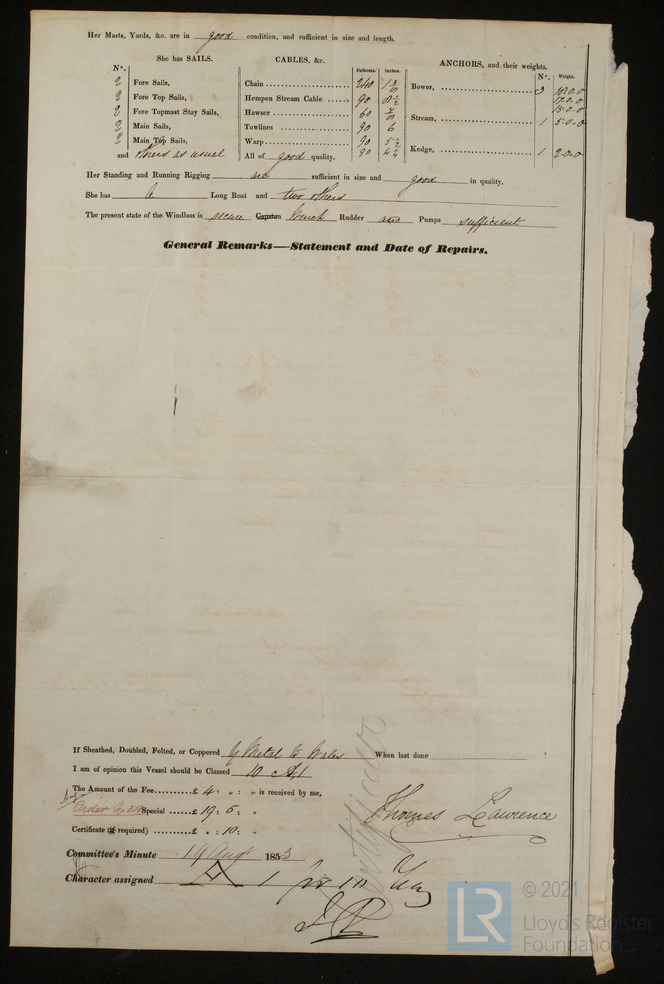 Her Masts, Yards, &c. are in good condition, and sufficient in size and length.
She has SAILS.
N°.
2 Fore Sails,
2 Fore Top Sails,
2 Fore Topmast Stay Sails,
2 Main Sails,
2 Main Top Sails,
and others as usual
CABLES, &c.
Fathoms. Inches.
Chain 240 1 3/8
Hempen Stream Cable 90 8 1/2
Hawser 60 7/8
Towlines 90 6
Warp 90 5 1/2
All of good quality. 90 4 1/4
ANCHORS, and their weights.
N°. Weight.
Bower, 3 18.0.0
17.0.0
15.0.0
Stream, 1 5.0.0
Kedge, 1 2.0.0
Her Standing and Running Rigging are sufficient in size and good in quality.
She has a Long Boat and two others
The present state of the Windlass is secure Capstan Winch Rudder and Pumps sufficient
General Remarks—Statement and Date of Repairs.
If Sheathed, Doubled, Felted, or Coppered Y Metal to Wales When last done
I am of opinion this Vessel should be Classed 10 A 1
The Amount of the Fee £ 4 : " : " is received by me,
Order No 318 Special £ 19 : 5 : "
Certificate (if required) £ " : 10 : "
Thomas Lawrence
Certificate
Committee's Minute 19 Augt 1853
Character assigned A 1 for 10 Yrs
© 2021
LR
Lloyd's Register
Foundation